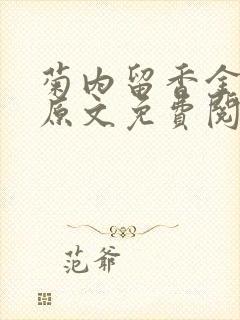 菊内留香全
原文免费阅
范爷